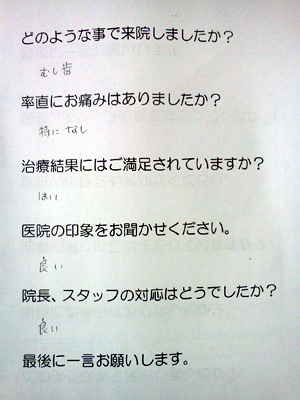 どのような事で来院しましたか？
むし歯
率直にお痛みはありましたか？
特になし
治療結果にはご満足されていますか？
はい
医院の印象をお聞かせください。
良い
院長、スタッフの対応はどうでしたか？
良い
最後に一言お願いします。